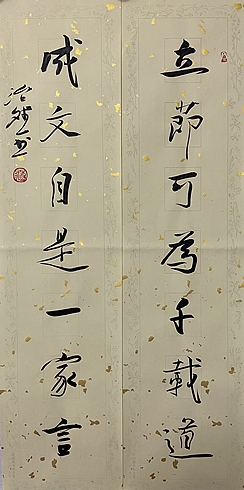 立節可為千載道
成文自是一家言